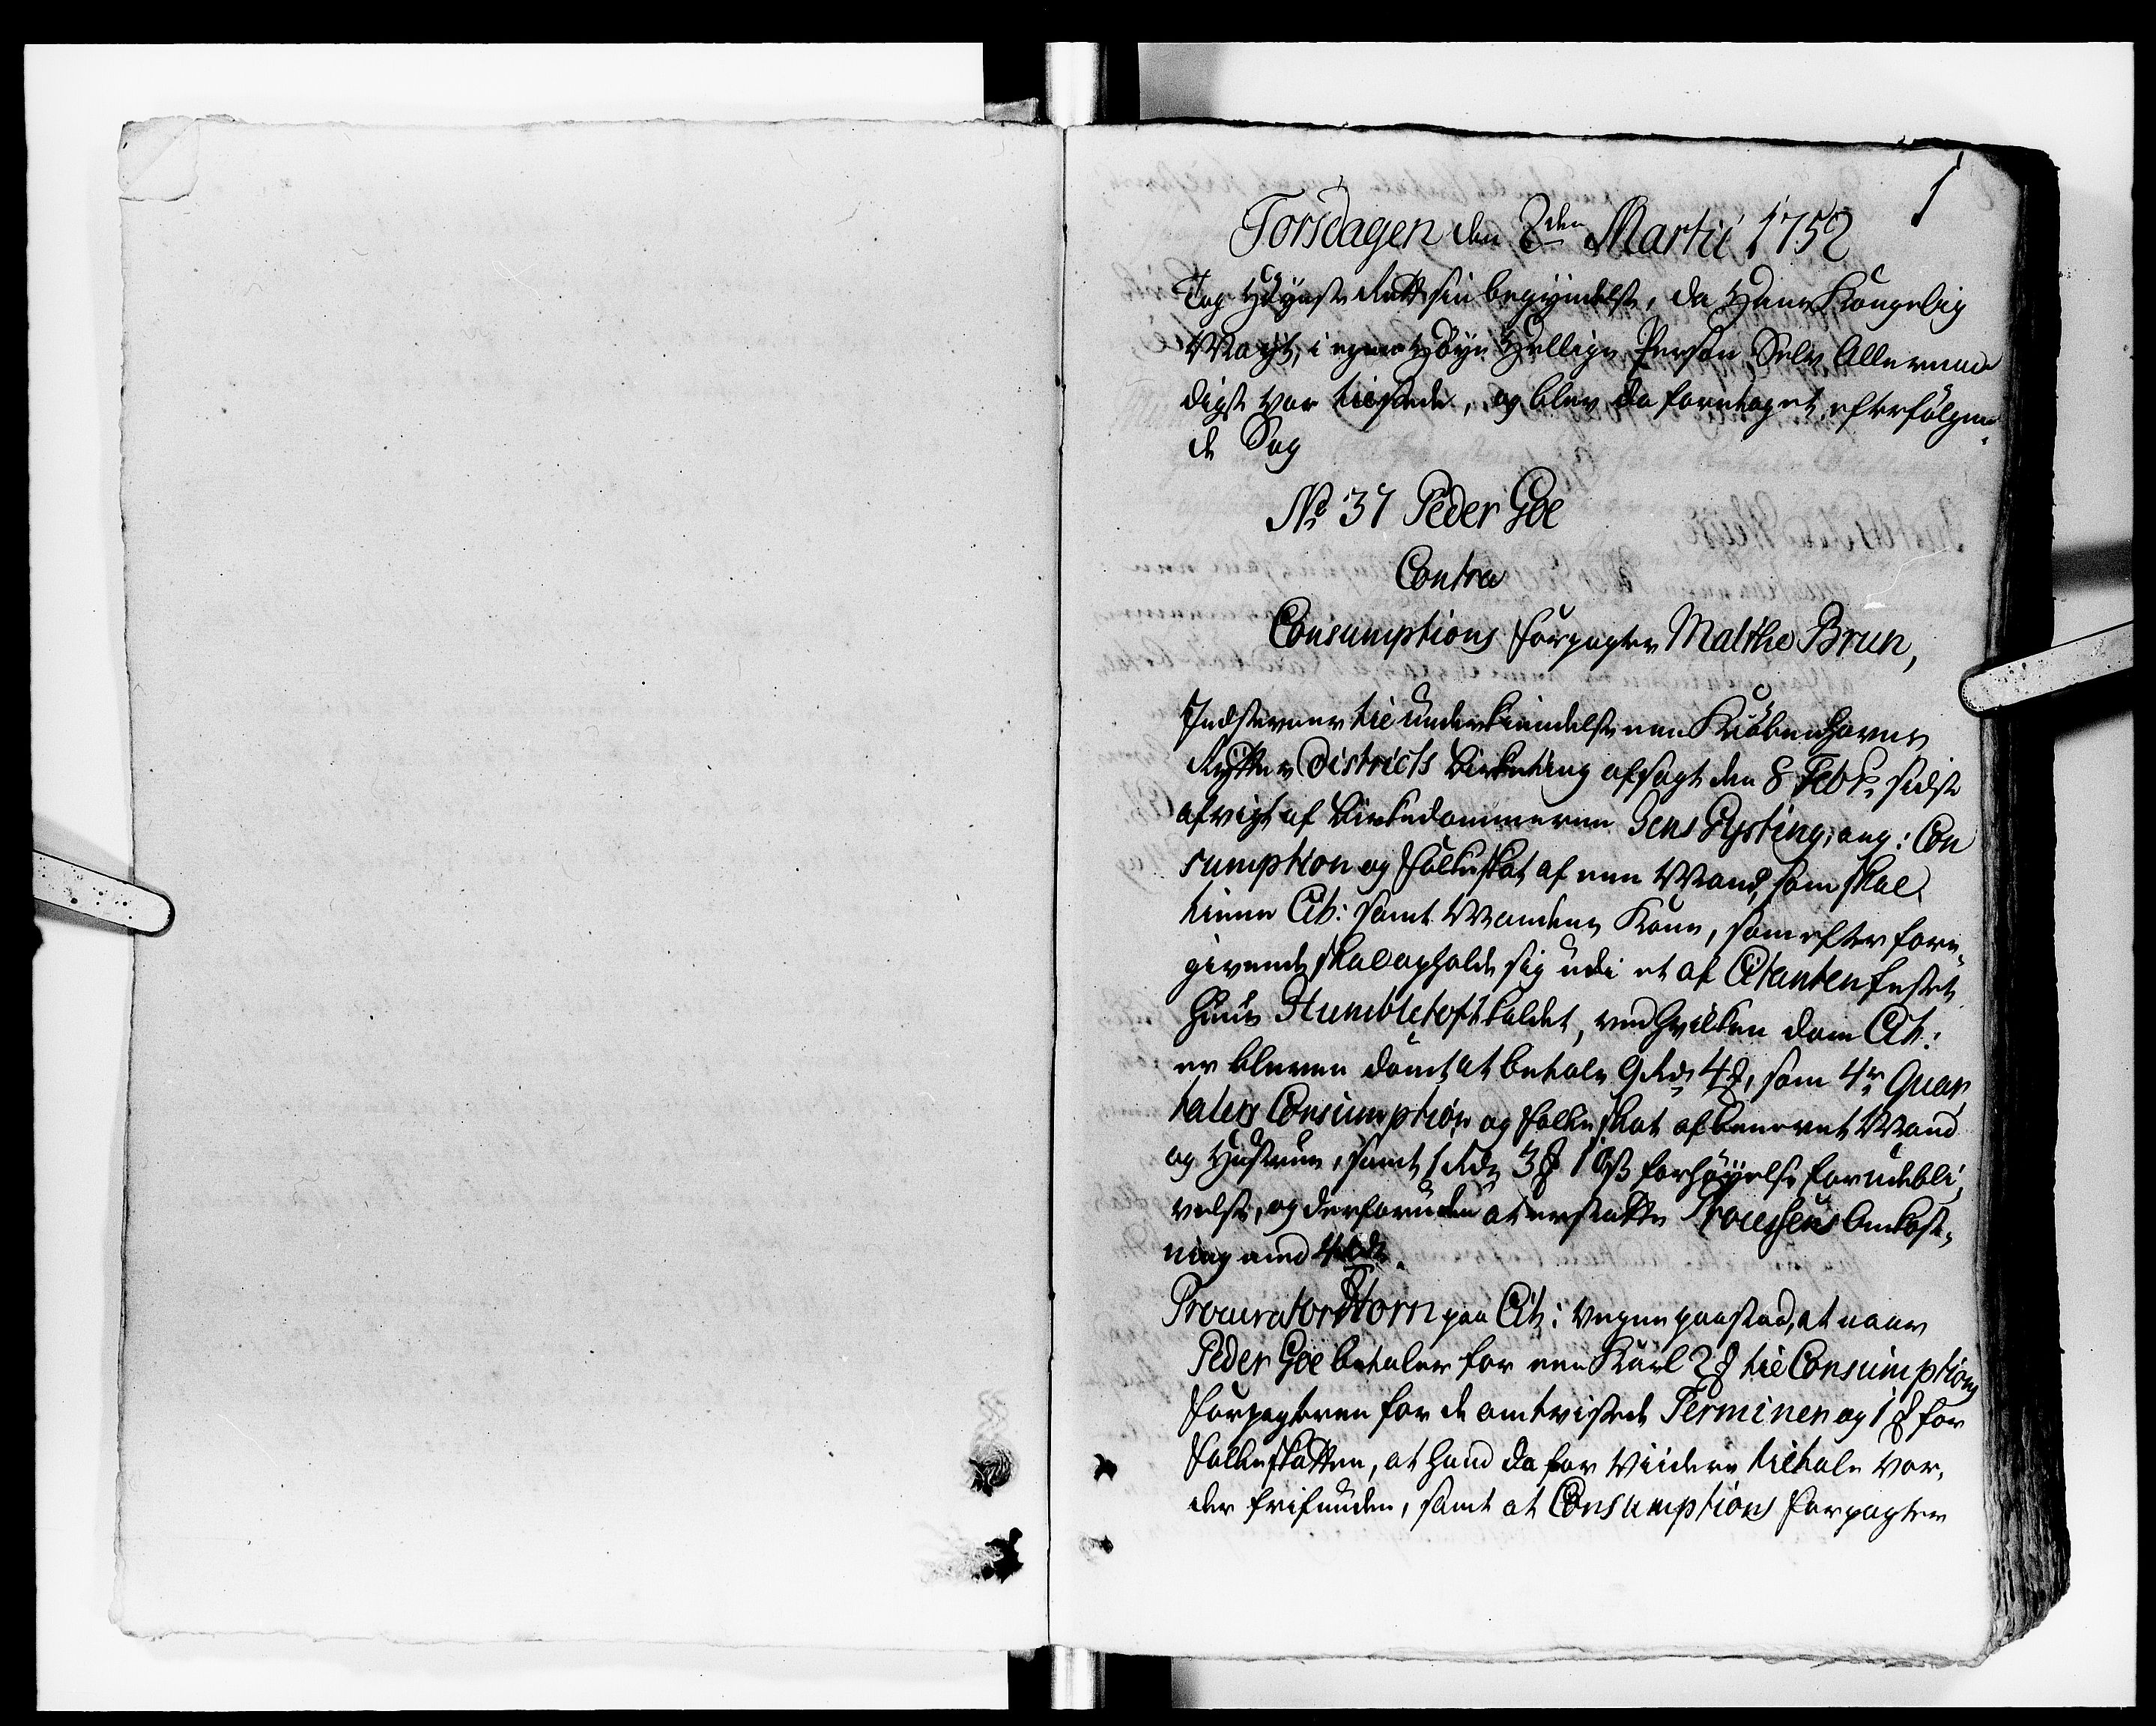 1
Torsdagen den 2den Martii 1752
Tog Høyeste Rett sin begyndelse, da Hans Kongelig
Mayt, i egen Høye Hellige Person Selv Allernaa
digst var tilstede, og blev da foretaget efterfølgen
de Sag
No 37 Peder Goe
Contra
Consumptions forpagter Malthe Brun,
Indstevner til underkiendelse een Kiøbenhavns
Rytter Districts Birketing afsagt den 8 Febr. sidst
afvigt af Birkedommeren Jens Gysting, ang: Con
sumption og folkeskat af een Mand, som skal
tiene Cit: samt Mandens Kone, som efter fore
givende skal opholde sig udi et af Citanten festet
Huus Humbletoft kaldet, ved hvilken dom Cit:
er bleven dømt at betale 9 Rdr 4 ₰, som 4re Quar
talers Consumption og folkeskat af benevnt Mand
og Hustrue, samt 1 Rdr 3 ₰ 10 ß forhøyelse for udebli
velse, og derforuden at erstatte Processens Omkost
ning med 4 Rdr.
Procurator Horn paa Cit: vegne paastod, at naar
Peder Goe betaler for een Karl 2 ₰ til Consumptions
forpagteren for de omtvistede Terminer og 1 ₰ for
folkeskatten, at hand da for Viidere tiltale vor
der frifunden, samt at Consumptions forpagter